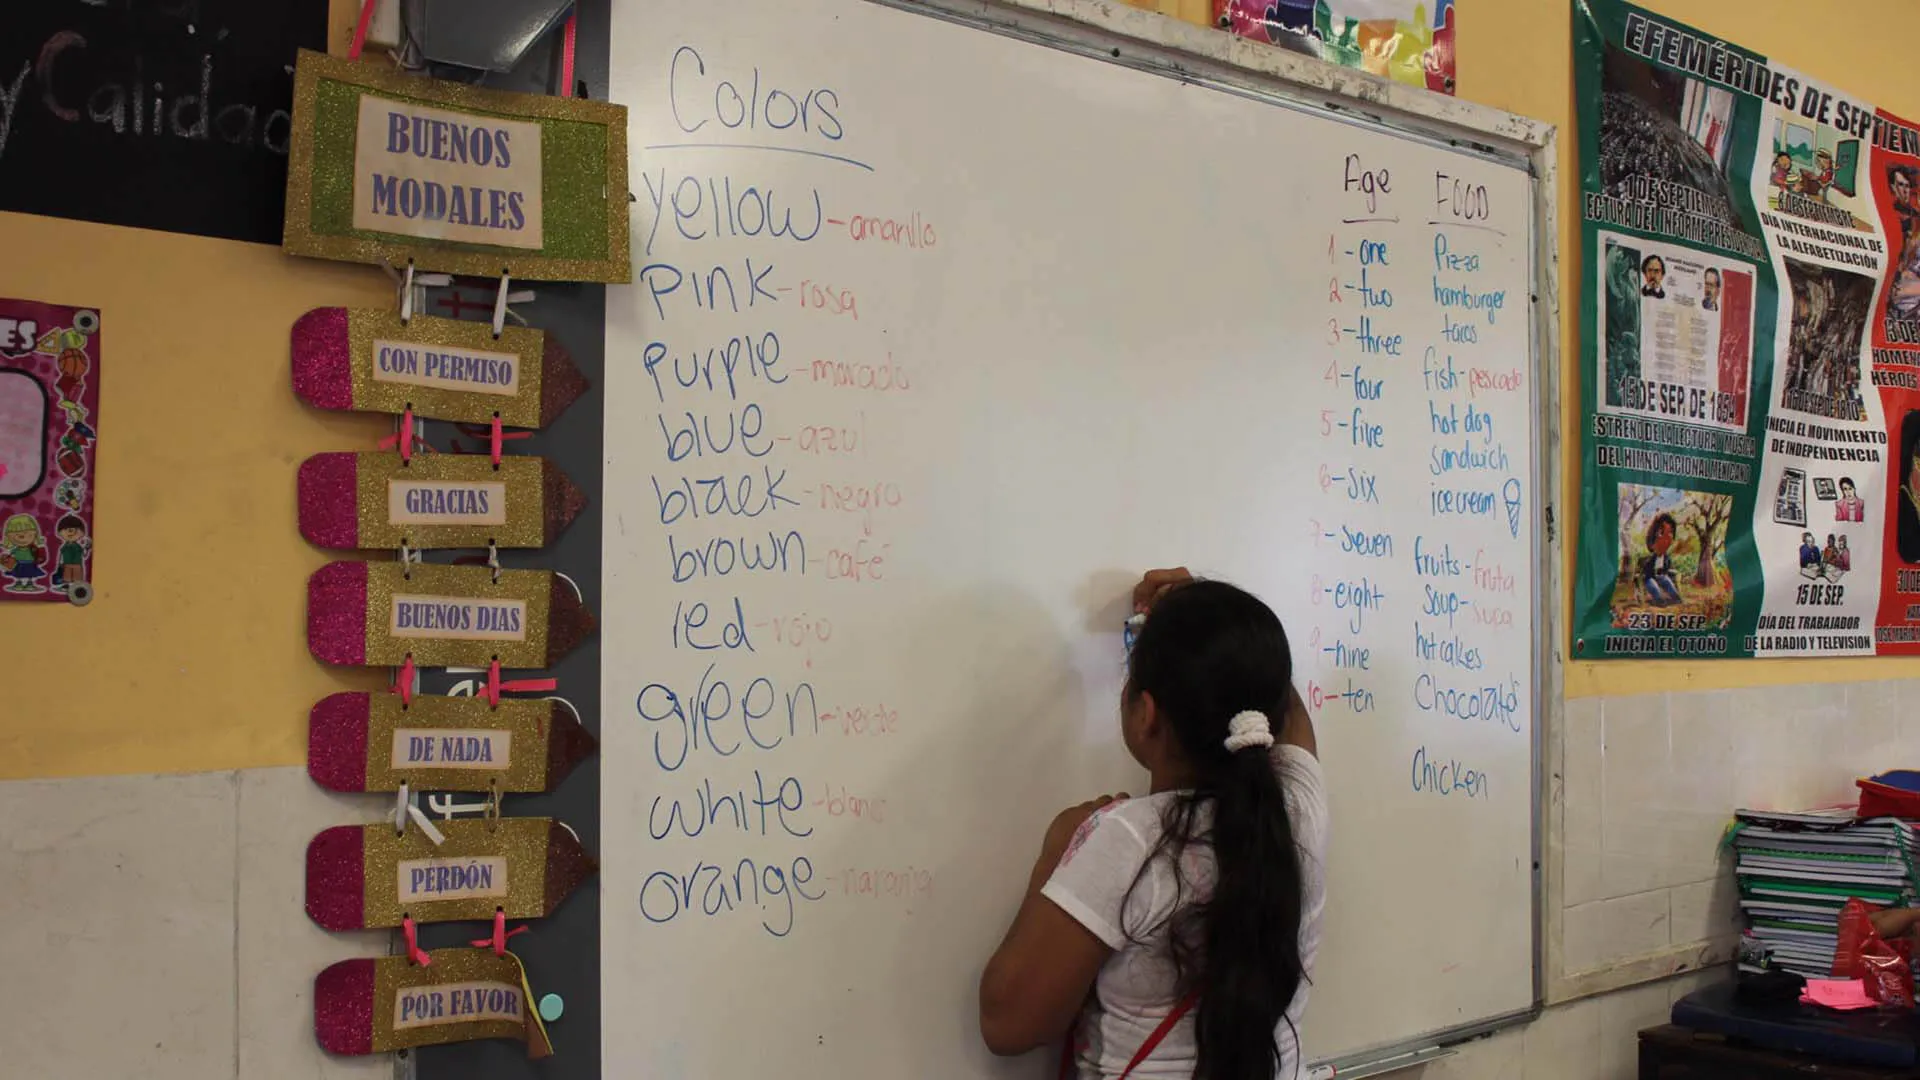 y Calidad
BUENOS
MODALES
CON PERMISO
GRACIAS
BUENOS DIAS
DE NADA
PERDÓN
POR FAVOR
Colors
yellow - amarillo
pink - rosa
purple - morado
blue - azul
black - negro
brown - café
red - rojo
green - verde
white - blanc
orange - naranja
Age
1 - one
2 - two
3 - three
4 - four
5 - five
6 - six
7 - seven
8 - eight
9 - nine
10 - ten
FOOD
Pizza
hamburger
tacos
fish - pescado
hot dog
sandwich
ice cream
fruits - fruta
soup -
hot cakes
Chocolate
Chicken
EFEMÉRIDES DE SEPTIEM
1 DE SEPTIEMBRE
ECTURA DEL INFORME PRESIDENCIAL
15 DE SEP. DE 1854
ESTRENO DE LA LECTURA Y MUSICA
DEL HIMNO NACIONAL MEXICANO
23 DE SEP
INICIA EL OTOÑO
8 DE SEPTIEMBRE
DÍA INTERNACIONAL DE
LA ALFABETIZACIÓN
16 DE SEP. DE 1810
INICIA EL MOVIMIENTO
DE INDEPENDENCIA
15 DE SEP.
DÍA DEL TRABAJADOR
DE LA RADIO Y TELEVISION
13 DE
HOMEN
HÉROES
30 DE
JOSÉ MARÍA
ES